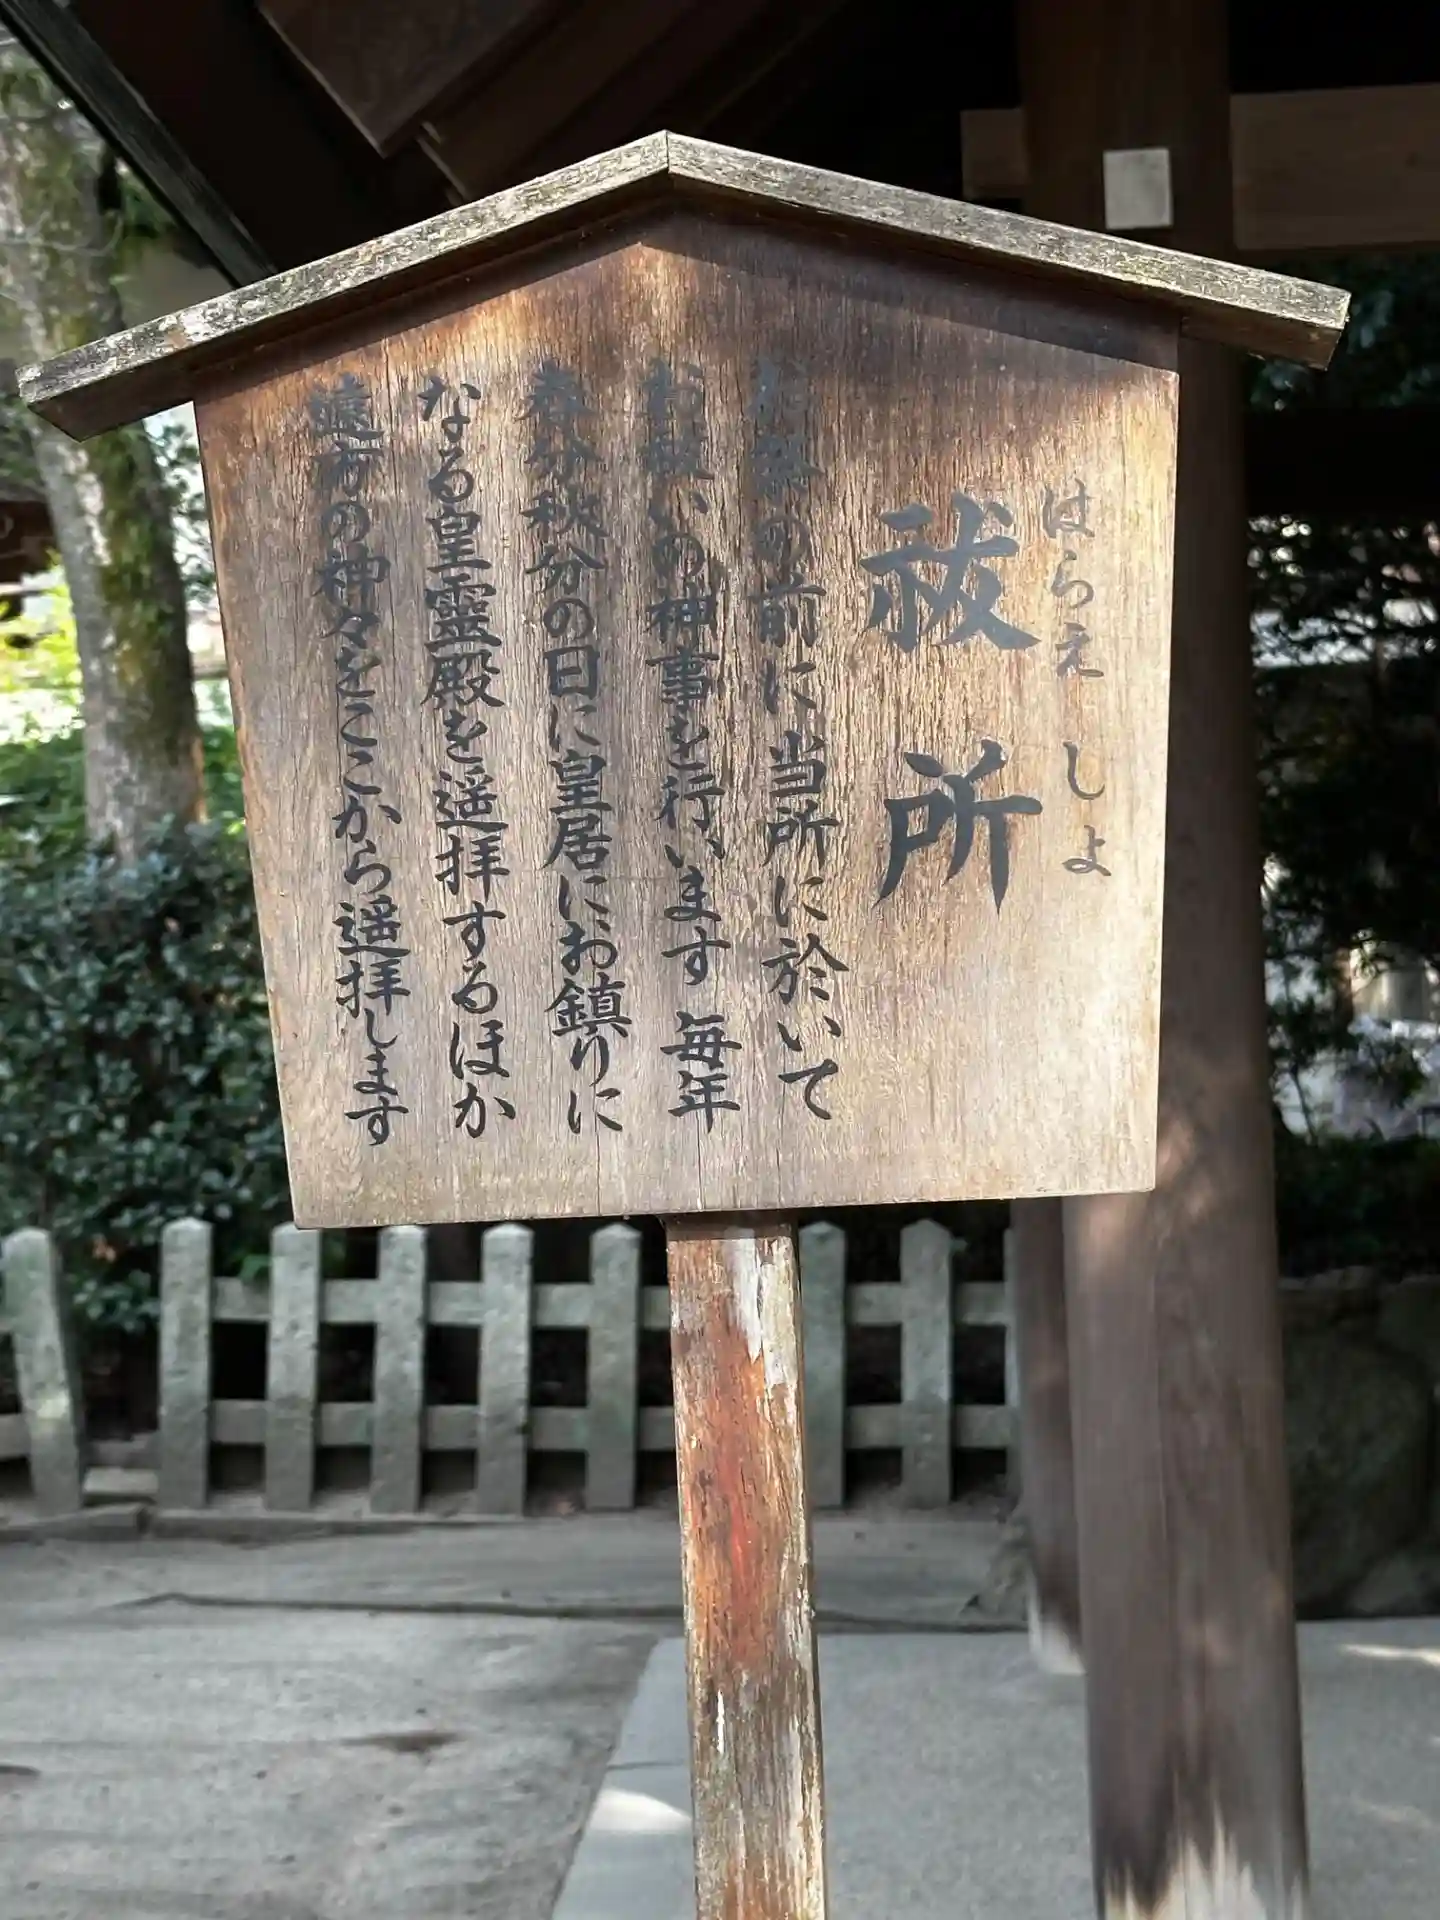 はらえしよ
祓所
お祭の前に当所に於いて
お祓いの神事を行います 毎年
春分秋分の日に皇居にお鎮りに
なる皇霊殿を遥拝するほか
遠方の神々をここから遥拝します